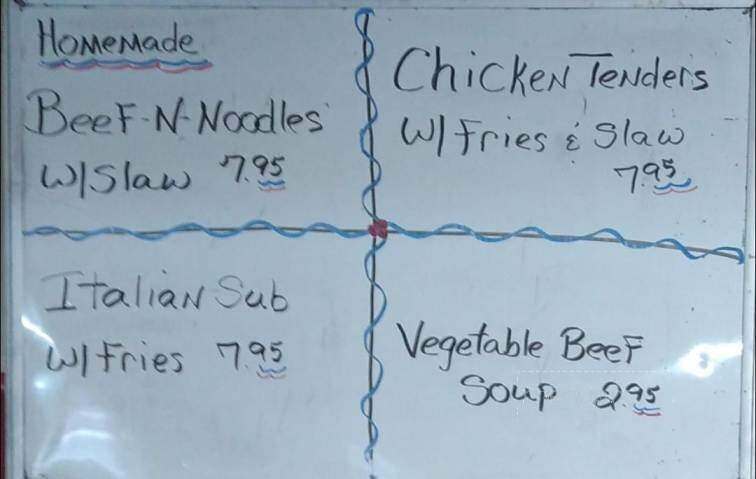 Homemade
Beef-N-Noodles
W/Slaw 7.95
Chicken Tenders
W/Fries & Slaw
7.95
Italian Sub
W/Fries 7.95
Vegetable Beef
Soup 2.95